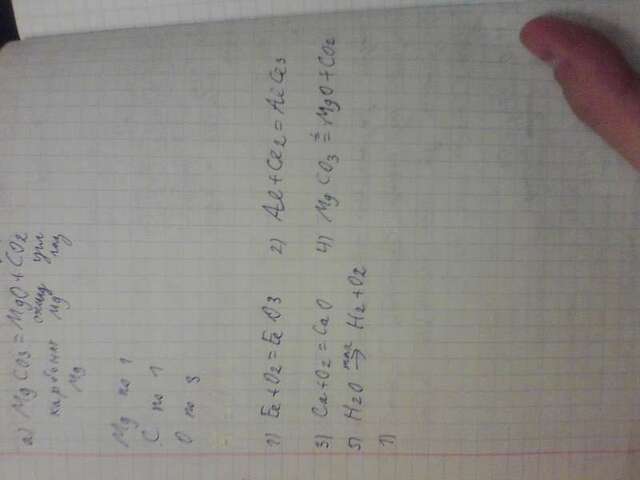 а) MgCO3 = MgO + CO2
карбонат оксид угл
Mg Mg газ
Mg по 1
C по 1
O по 3
1) Fe + O2 = Fe O3 2) Al + Cl2 = AlCl3
3) Ca + O2 = CaO 4) MgCO3 = MgO + CO2
5) H2O → H2 + O2
1)